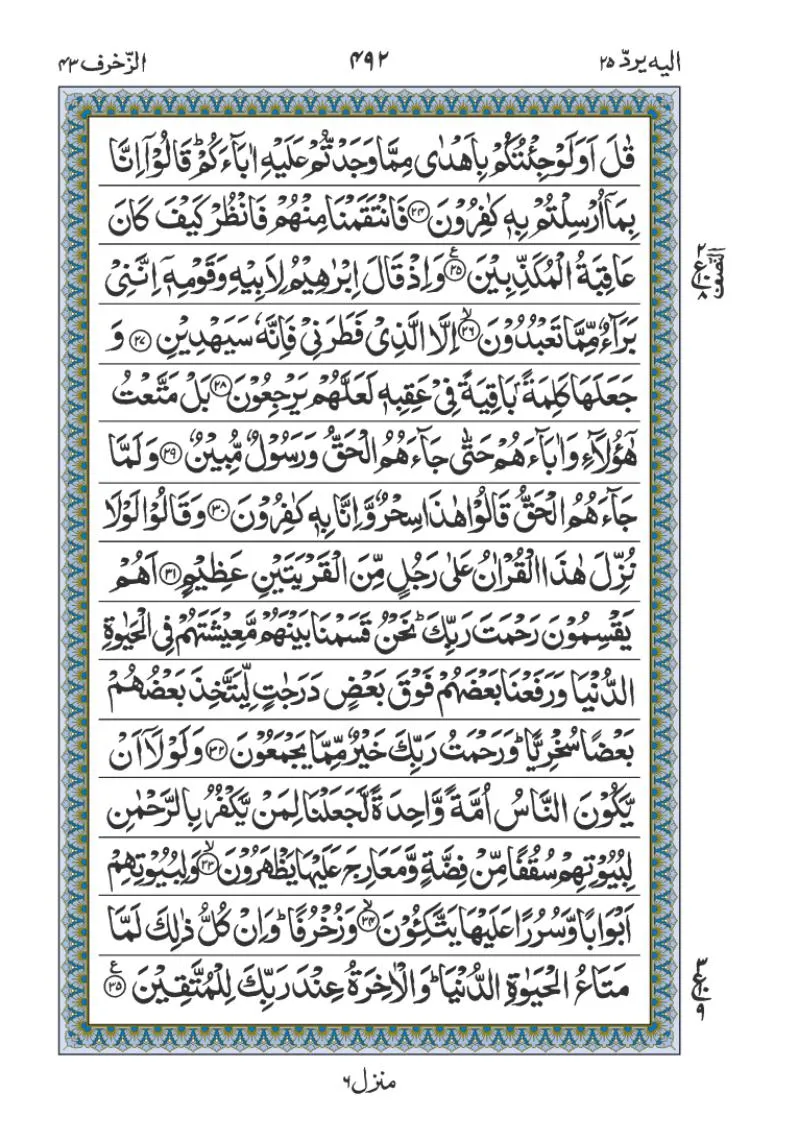 الزخرف ۴۳
۴۹۲
الیه یردّ ۲۵
قٰلَ اَوَلَوْ جِئْتُكُمْ بِاَهْدٰى مِمَّا وَجَدْتُّمْ عَلَیْهِ اٰبَآءَكُمْ ؕ قَالُوْۤا اِنَّا
بِمَاۤ اُرْسِلْتُمْ بِهٖ كٰفِرُوْنَ ﴿۲۴﴾ فَانْتَقَمْنَا مِنْهُمْ فَانْظُرْ كَیْفَ كَانَ
عَاقِبَةُ الْمُكَذِّبِیْنَ ﴿۲۵﴾ ع وَاِذْ قَالَ اِبْرٰهِیْمُ لِاَبِیْهِ وَقَوْمِهٖۤ اِنَّنِیْ
بَرَآءٌ مِّمَّا تَعْبُدُوْنَ ﴿۲۶﴾ ۙ اِلَّا الَّذِیْ فَطَرَنِیْ فَاِنَّهٗ سَیَهْدِیْنِ ﴿۲۷﴾ وَ
جَعَلَهَا كَلِمَةًۢ بَاقِیَةً فِیْ عَقِبِهٖ لَعَلَّهُمْ یَرْجِعُوْنَ ﴿۲۸﴾ بَلْ مَتَّعْتُ
هٰۤؤُلَآءِ وَاٰبَآءَهُمْ حَتّٰى جَآءَهُمُ الْحَقُّ وَرَسُوْلٌ مُّبِیْنٌ ﴿۲۹﴾ وَلَمَّا
جَآءَهُمُ الْحَقُّ قَالُوْا هٰذَا سِحْرٌ وَّاِنَّا بِهٖ كٰفِرُوْنَ ﴿۳۰﴾ وَقَالُوْا لَوْلَا
نُزِّلَ هٰذَا الْقُرْاٰنُ عَلٰى رَجُلٍ مِّنَ الْقَرْیَتَیْنِ عَظِیْمٍ ﴿۳۱﴾ اَهُمْ
یَقْسِمُوْنَ رَحْمَتَ رَبِّكَ ؕ نَحْنُ قَسَمْنَا بَیْنَهُمْ مَّعِیْشَتَهُمْ فِی الْحَیٰوةِ
الدُّنْیَا وَرَفَعْنَا بَعْضَهُمْ فَوْقَ بَعْضٍ دَرَجٰتٍ لِّیَتَّخِذَ بَعْضُهُمْ
بَعْضًا سُخْرِیًّا ؕ وَرَحْمَتُ رَبِّكَ خَیْرٌ مِّمَّا یَجْمَعُوْنَ ﴿۳۲﴾ وَلَوْلَاۤ اَنْ
یَّكُوْنَ النَّاسُ اُمَّةً وَّاحِدَةً لَّجَعَلْنَا لِمَنْ یَّكْفُرُ بِالرَّحْمٰنِ
لِبُیُوْتِهِمْ سُقُفًا مِّنْ فِضَّةٍ وَّمَعَارِجَ عَلَیْهَا یَظْهَرُوْنَ ﴿۳۳﴾ ۙ وَلِبُیُوْتِهِمْ
اَبْوَابًا وَّسُرُرًا عَلَیْهَا یَتَّكِـُٔوْنَ ﴿۳۴﴾ ۙ وَزُخْرُفًا ؕ وَاِنْ كُلُّ ذٰلِكَ لَمَّا
مَتَاعُ الْحَیٰوةِ الدُّنْیَا ؕ وَالْاٰخِرَةُ عِنْدَ رَبِّكَ لِلْمُتَّقِیْنَ ﴿۳۵﴾ ع
النصف
۲
ع ۱۰
۸
۳
ع ۱۰
۹
منزل ۶